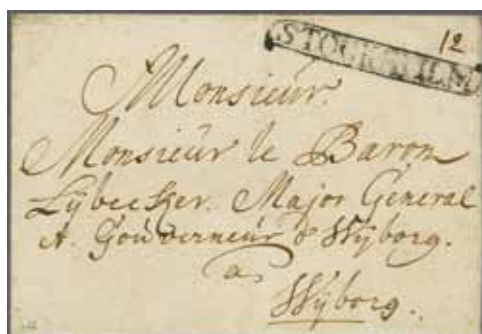 12
STOCKHOLM
Monsieur.
Monsieur le Baron
Lÿbecker. Major General
et. Gouverneur d' Wÿborg.
a
Wÿborg.